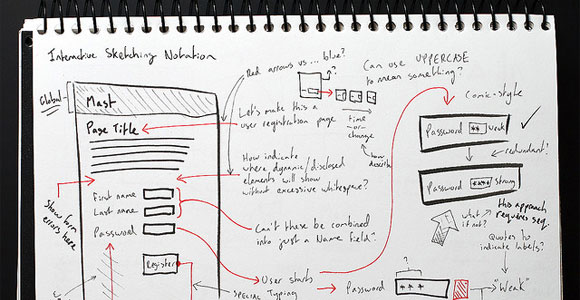 Interactive Sketching Notation
Global
Mast
Page Title
First name
Last name
Password
Register
Show form
errors here
Red arrows us ... blue?
Let's make this a
user registration page
How indicate
where dynamic/disclosed
elements will show
without excessive whitespace?
Can't these be combined
into just a Name field?
User starts
SPECIAL Typing
?
Can use UPPERCASE
to mean something?
time
or
change
how describe
Comic-style
Password ** weak
redundant!
Password **** strong
what
if not?
this approach
requires seq.
Quotes to
indicate labels?
?
Password ***
"Weak"